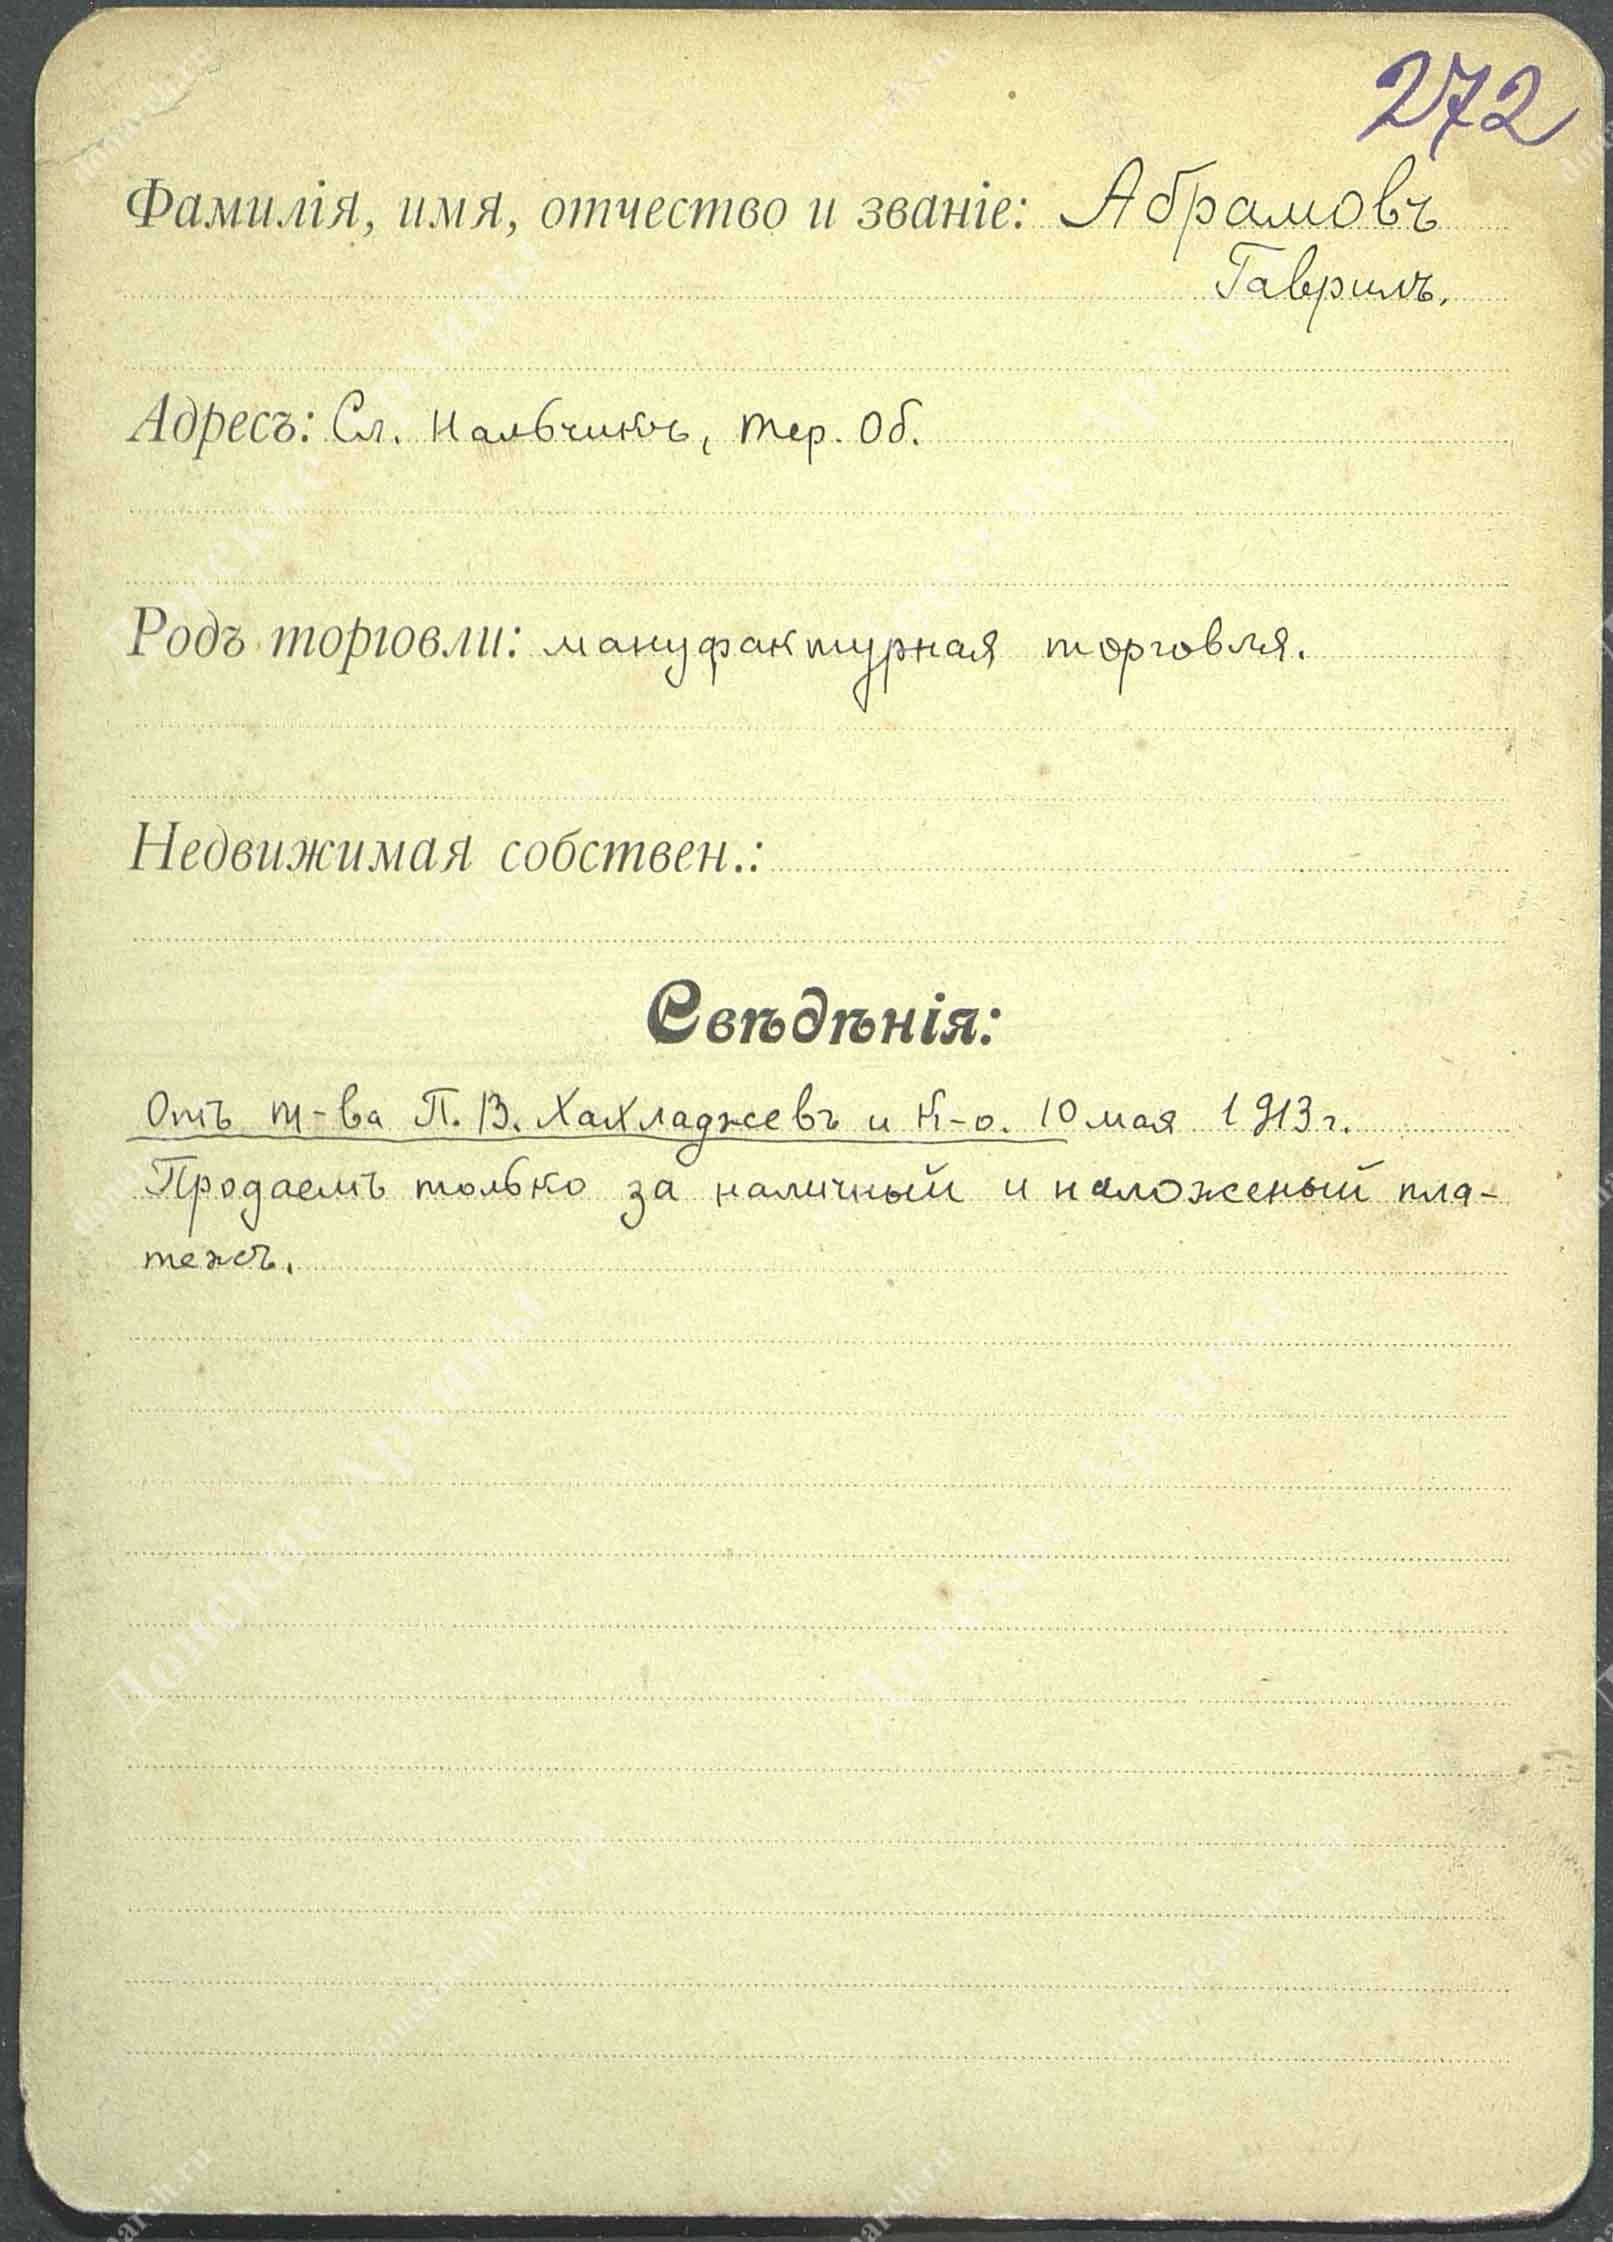 272
Фамилія, имя, отчество и званіе: Абрамовъ
Гаврилъ.
Адресъ: Сл. Нальчикъ, Тер. Об.
Родъ торговли: мануфактурная торговля.
Недвижимая собствен.:
Свѣдѣнія:
Отъ т-ва П. В. Хахладжевъ и К-о. 10 мая 1913 г.
Продаемъ только за наличный и наложеный пла-
тежъ.